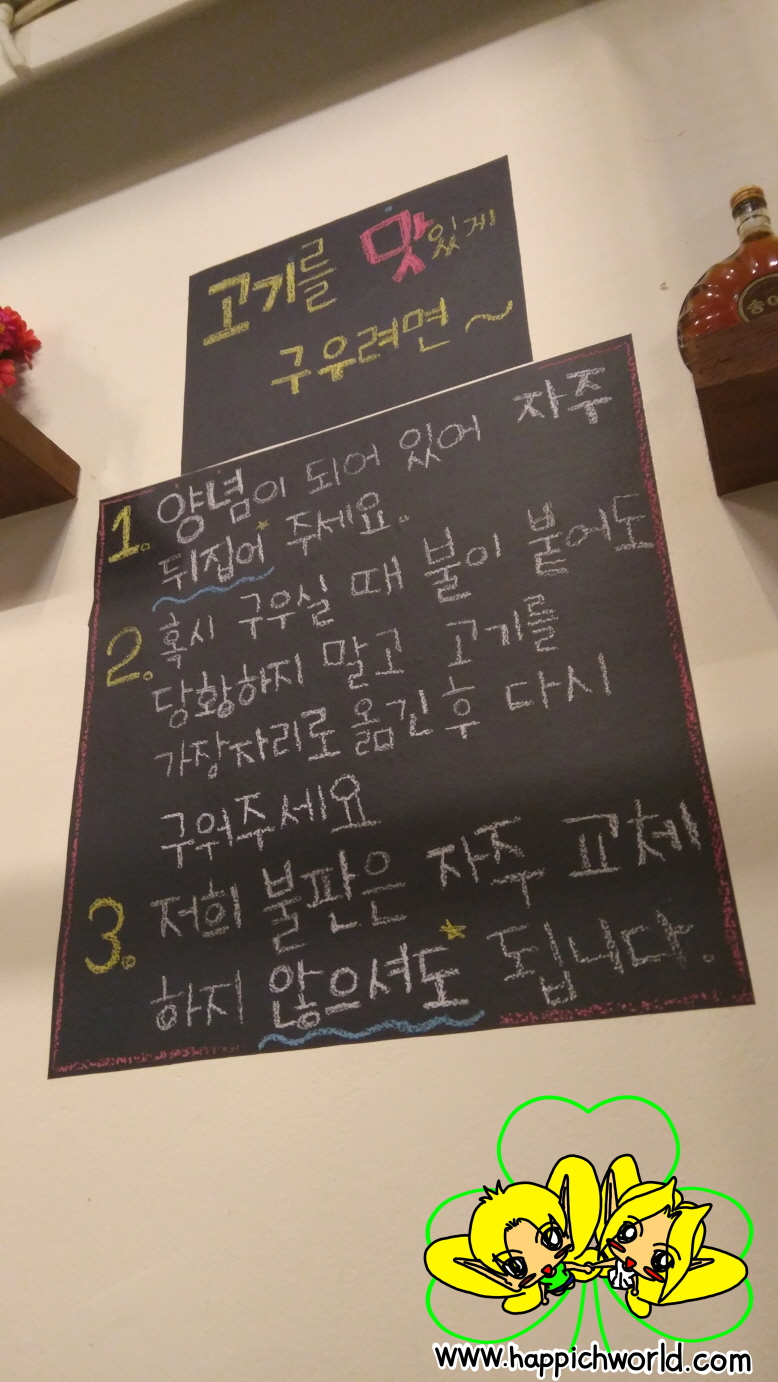 고기를 맛있게
구우려면~
1. 양념이 되어 있어 자주
뒤집어 주세요.
2. 혹시 구우실 때 불이 붙어도
당황하지 말고 고기를
가장자리로 옮긴 후 다시
구워주세요
3. 저희 불판은 자주 교체
하지 않으셔도 됩니다.
www.happichworld.com